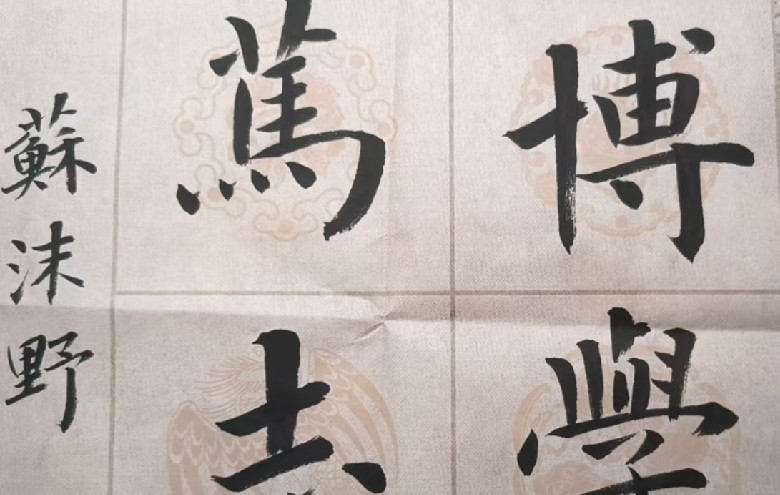 博學
篤志
蘇沫野